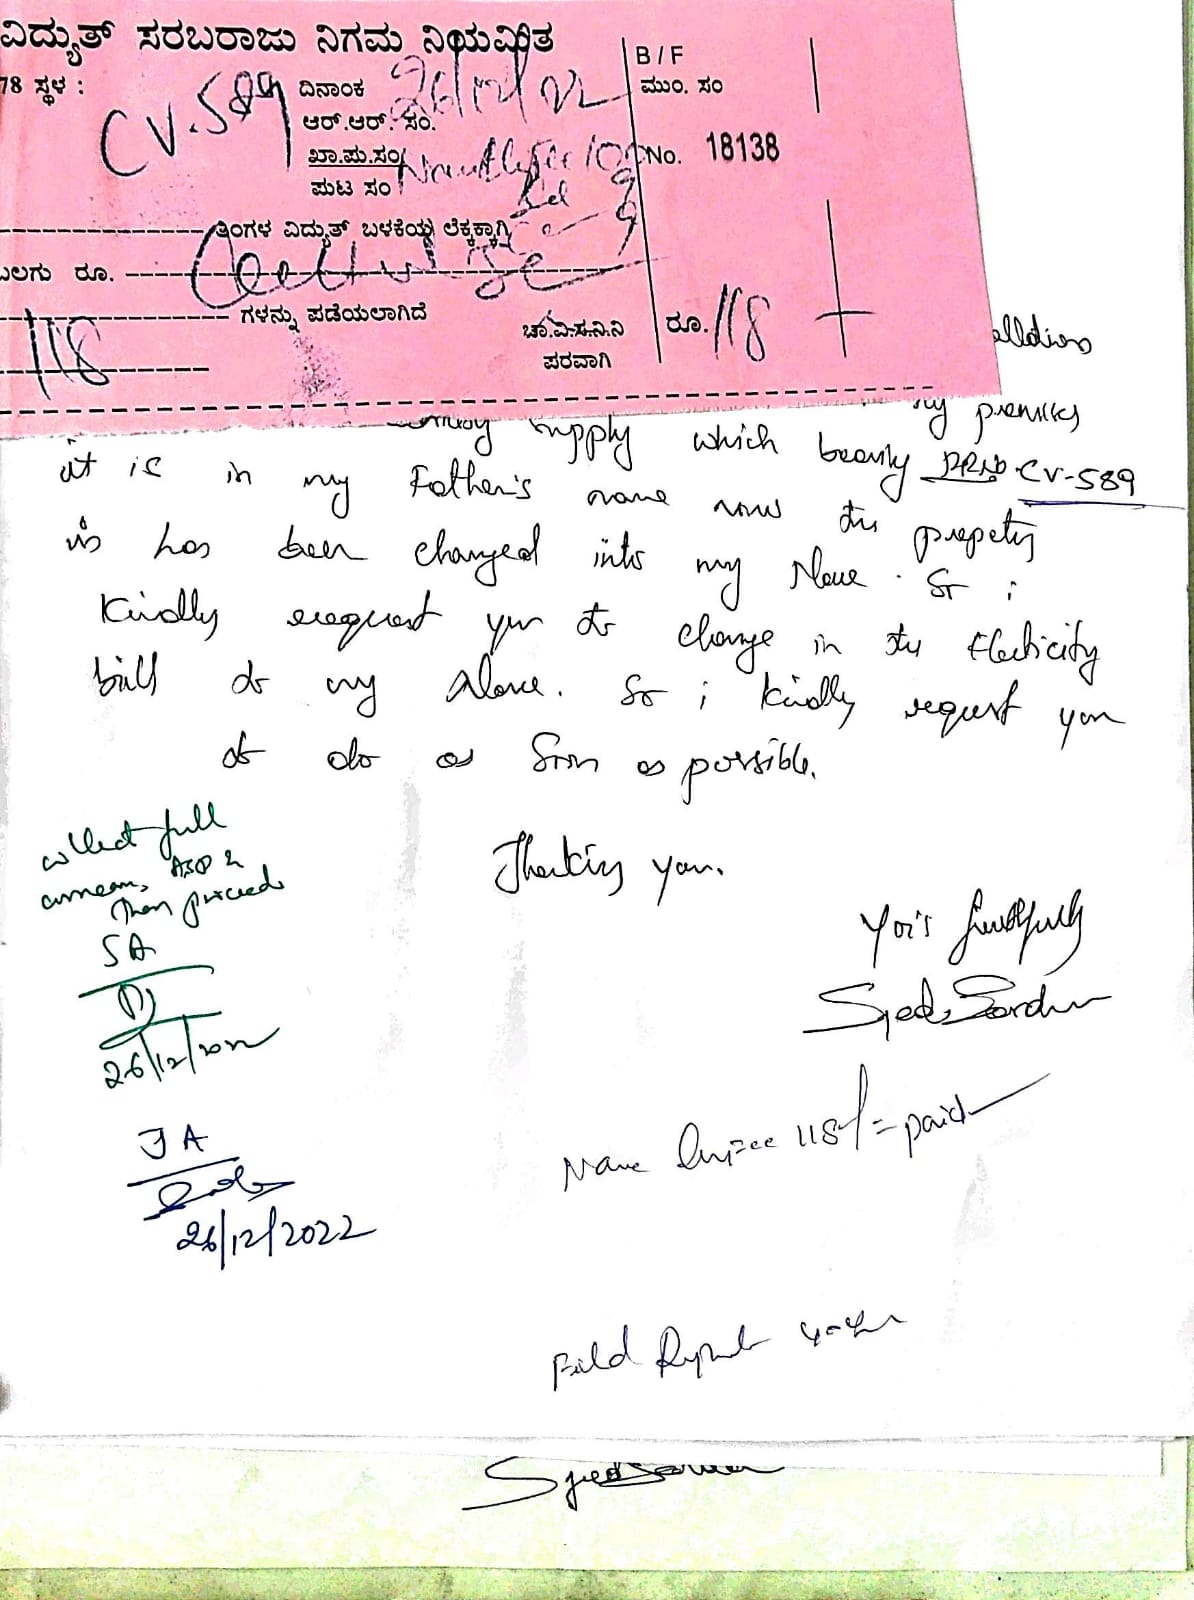 ವಿದ್ಯುತ್ ಸರಬರಾಜು ನಿಗಮ ನಿಯಮಿತ
78 ಸ್ಥಳ :
CV-589
ದಿನಾಂಕ 26/12/22
ಆರ್.ಆರ್. ಸಂ.
ಖಾ.ಪು.ಸಂ
ಪುಟ ಸಂ
B / F
ಮುಂ. ಸಂ
No. 18138
ತಿಂಗಳ ವಿದ್ಯುತ್ ಬಳಕೆಯ ಲೆಕ್ಕಕ್ಕಾಗಿ
ಬಲಗು ರೂ.
ಗಳನ್ನು ಪಡೆಯಲಾಗಿದೆ
118
ಚಾ.ವಿ.ಸ.ನಿ.ನಿ
ಪರವಾಗಿ
ರೂ. 118
allations
supply which bearing my premises
it is in my Father's name now the property CV-589
is has been changed into my Name. So i
Kindly request you to change in the Electicity
bill to my Name. So i kindly request you
to do as Soon as possible.
Thanking you.
Your's faithfully
Syed Sardar
collect full
ASD &
then proceed
SA
26/12/2022
JA
26/12/2022
Name 118/= paid
Field
Syed Sardar